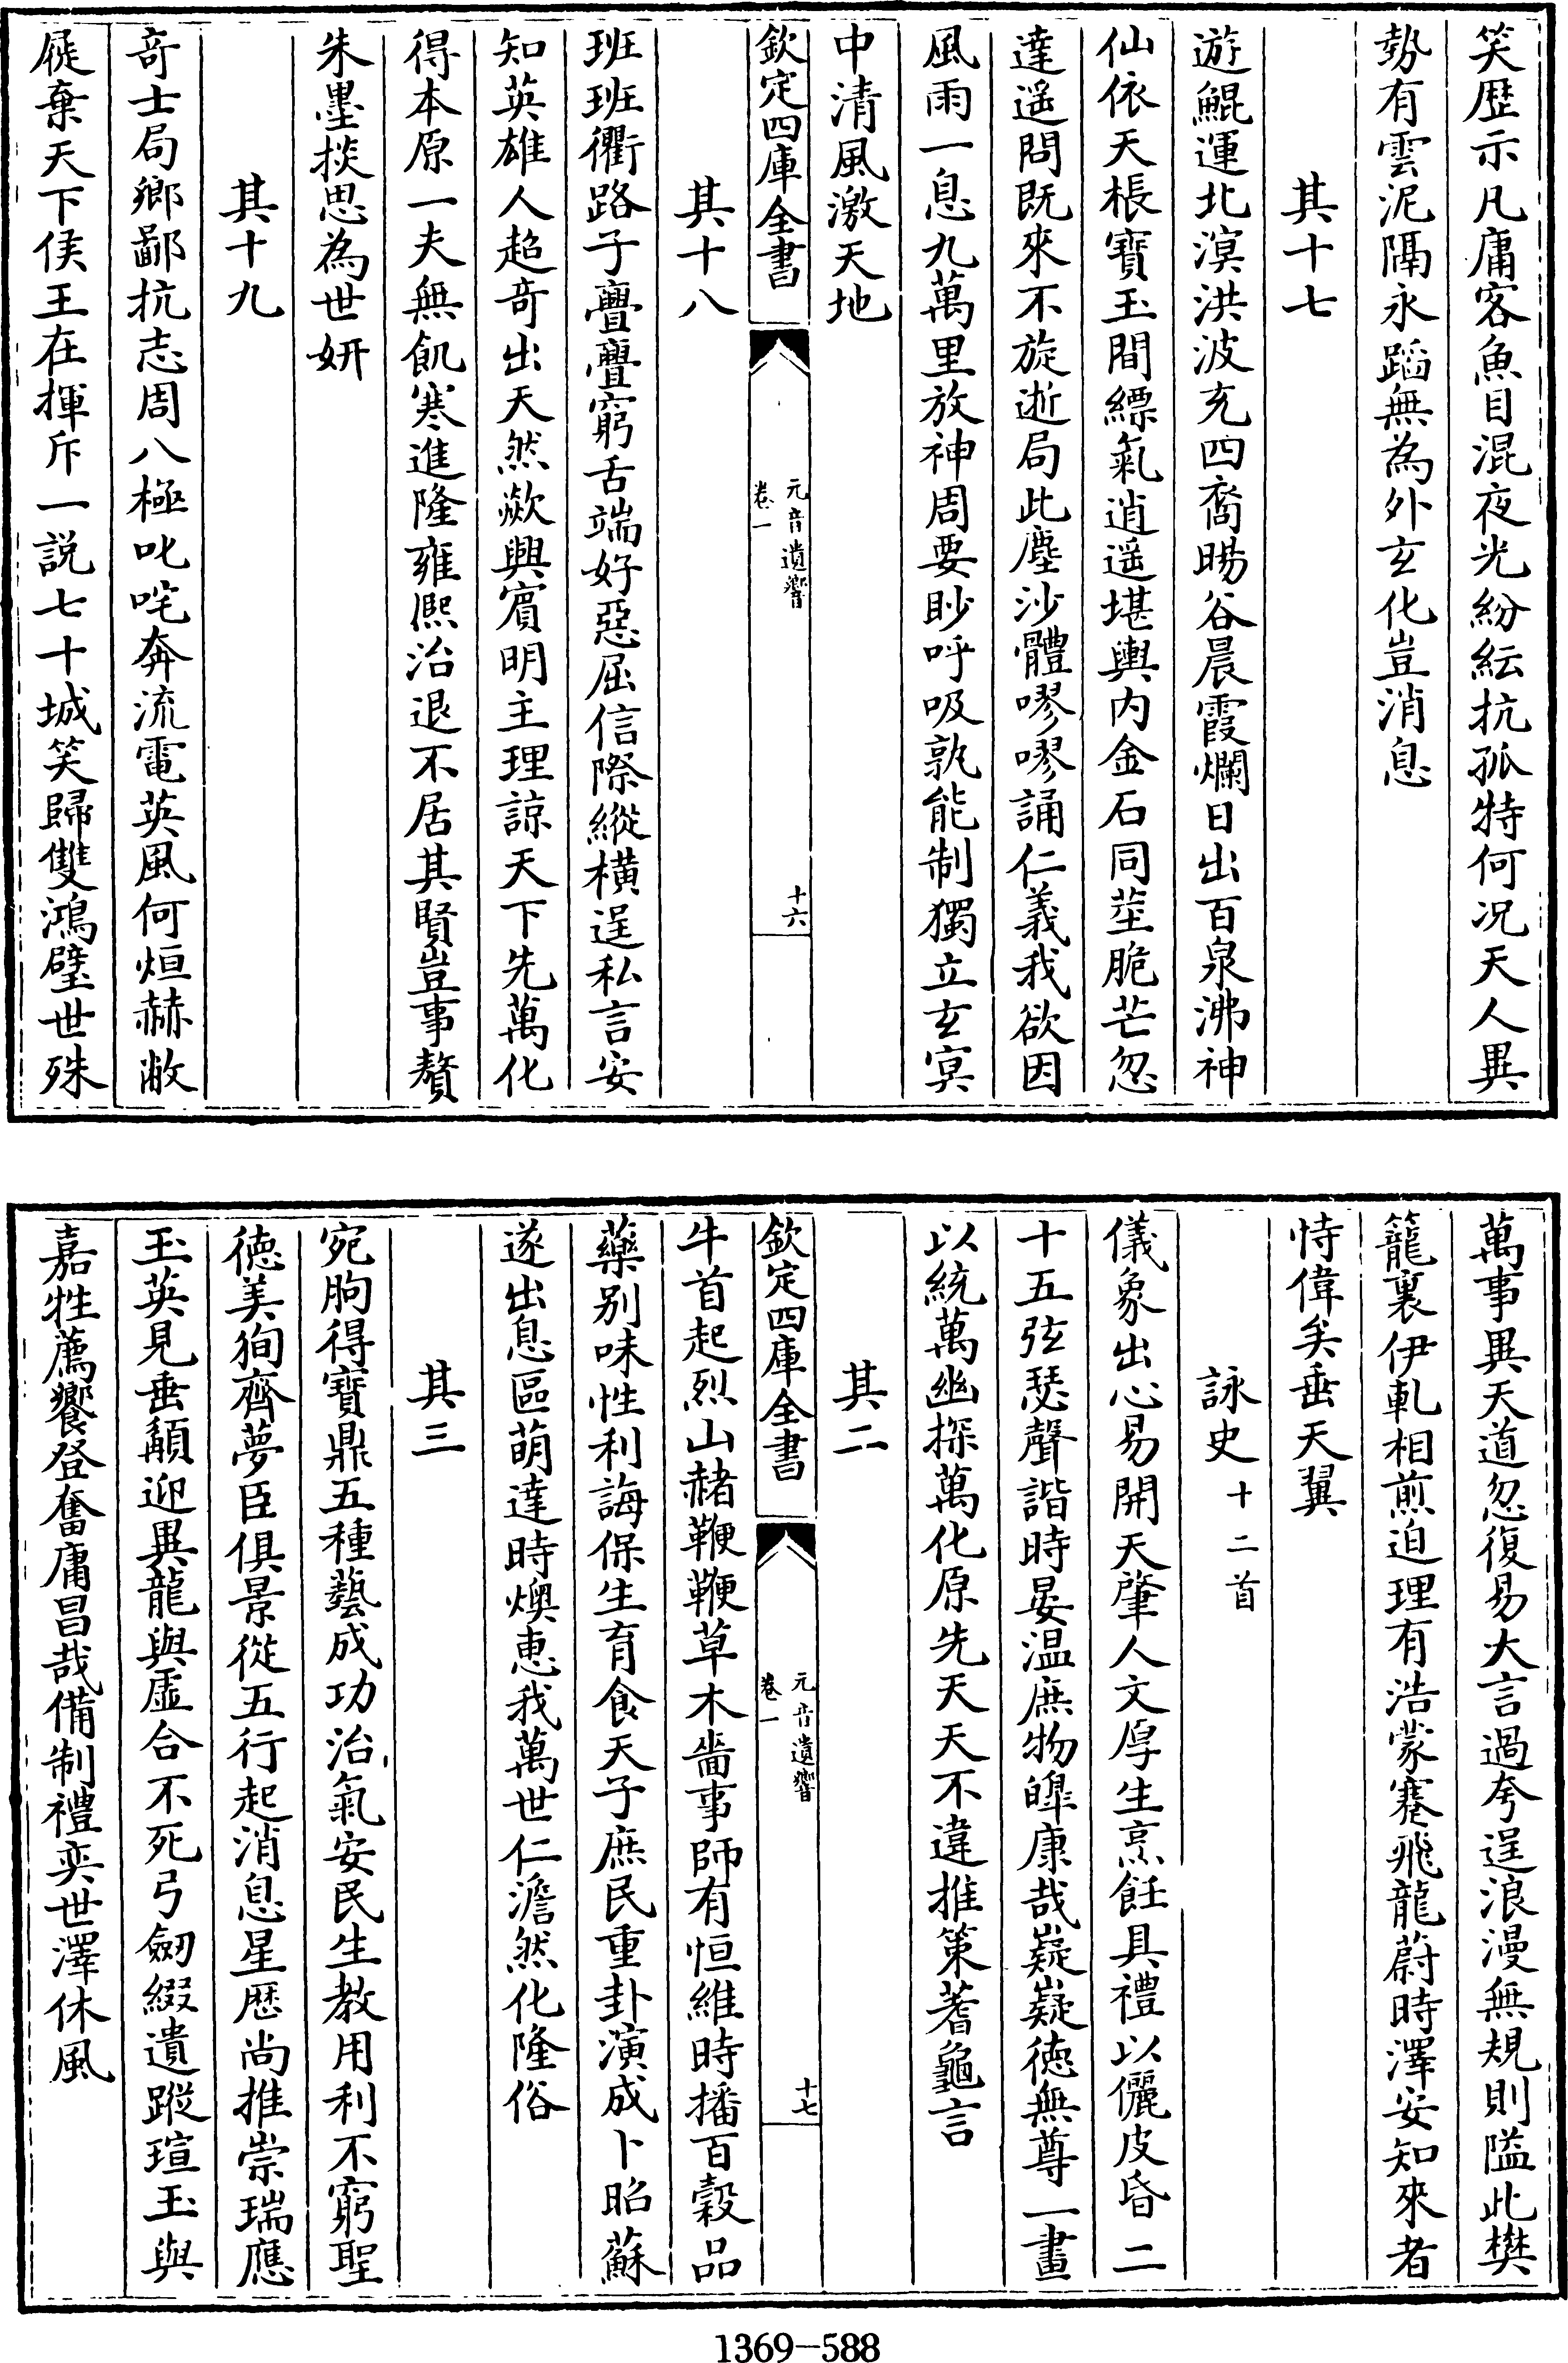 笑歴示凡庸客魚目混夜光紛紜抗孤特何况天人異
勢有雲泥隔永蹈無為外玄化豈消息
其十七
遊鯤運北溟洪波充四裔暘谷晨霞爛日出百泉沸神
仙依天棖寶玉間縹氣逍遥堪輿内金石同莖脆芒忽
達遥問既來不旋逝局此塵沙體嘐嘐誦仁義我欲因
風雨一息九萬里放神周要眇呼吸孰能制獨立玄冥
中清風激天地
欽定四庫全書
元音遺響
卷一
十六
其十八
班班衢路子亹亹窮舌端好惡屈信際縱橫逞私言安
知英雄人超奇出天然歘興賔明主理諒天下先萬化
得本原一夫無飢寒進隆雍熈治退不居其賢豈事贅
朱墨掞思為世妍
其十九
奇士局鄉鄙抗志周八極叱咤奔流電英風何烜赫敝
屣棄天下侯王在揮斥一説七十城笑歸雙鴻璧世殊
萬事異天道忽復易大言過夸逞浪漫無規則隘此樊
籠裏伊軋相煎迫理有浩蒙蹇飛龍蔚時澤安知來者
恃偉矣垂天翼
詠史十二首
儀象出心易開天肇人文厚生烹飪具禮以儷皮昏二
十五弦瑟聲諧時晏温庶物皥康哉嶷嶷徳無尊一畫
以統萬幽探萬化原先天天不違推策蓍龜言
其二
欽定四庫全書
元音遺響
卷一
十七
牛首起烈山赭鞭鞭草木嗇事師有恒維時播百穀品
藥别味性利誨保生育食天子庶民重卦演成卜昭蘇
遂出息區萌達時燠惠我萬世仁澹然化隆俗
其三
宛朐得寶鼎五種藝成功治氣安民生教用利不窮聖
徳美徇齊夢臣俱景從五行起消息星歴尚推崇瑞應
玉英見垂顄迎異龍與虛合不死弓劒綴遺蹤瑄玉與
嘉牲薦饗登奮庸昌哉備制禮奕世澤休風
1369-588